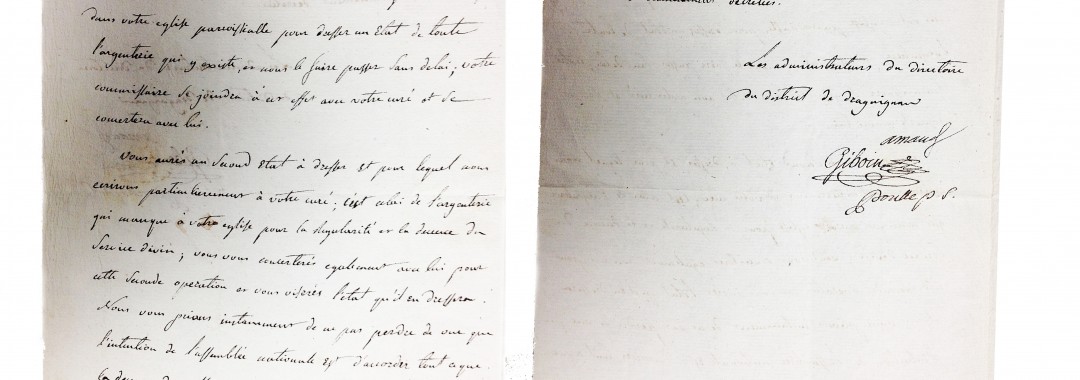 dans votre eglise parroissialle pour dresser un Etat de toute
l'argenterie qui y existe, et nous le faire passer sans delai; votre
commissaire se joindra à cet effet avec votre curé et se
concertera avec lui.
Vous aurés un second Etat à dresser et pour lequel nous
ecrivons particulierement à votre curé; c'est celui de l'argenterie
qui manque à votre eglise pour la régularité et la decence du
Service divin; vous vous concerterés egalement avec lui pour
cette seconde operation et vous viserés l'etat qu'il en dressera.
Nous vous prions instamment de ne pas perdre de vue que
l'intention de l'assemblée nationale est d'accorder tout ce que
Les administrateurs du directoire
du district de draguignan